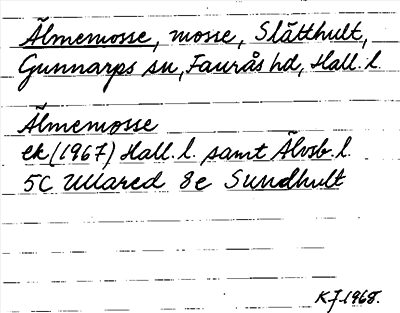 Älmemosse, mosse, Slätthult,
Gunnarps sn, Faurås hd, Hall. l.
Älmemosse
ek (1967) Hall. l. samt Älvsb. l.
5C Ullared 8e Sundhult
KJ 1968.